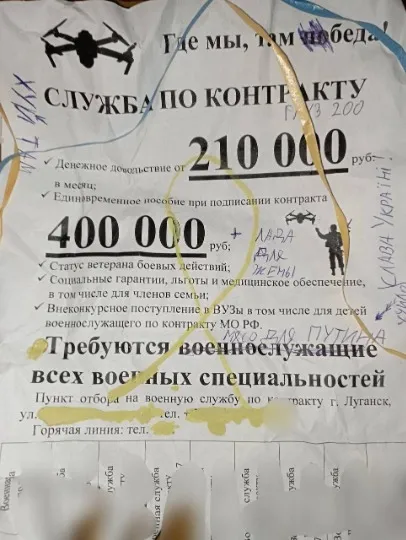 Где мы, там победа!
СЛУЖБА ПО КОНТРАКТУ
ГРУЗ 200
✓ Денежное довольствие от 210 000 руб.
в месяц;
✓ Единовременное пособие при подписании контракта
400 000 руб;
+ ЛАДА
ДЛЯ
ЖЕНЫ
СЛАВА УКРАЇНІ!
✓ Статус ветерана боевых действий;
✓ Социальные гарантии, льготы и медицинское обеспечение,
в том числе для членов семьи;
✓ Внеконкурсное поступление в ВУЗы в том числе для детей
военнослужащего по контракту МО РФ.
МЯСО ДЛЯ ПУТИНА
Требуются военнослужащие
всех военных специальностей
Пункт отбора на военную службу по контракту г. Луганск,
ул. тел. +
Горячая линия: тел.